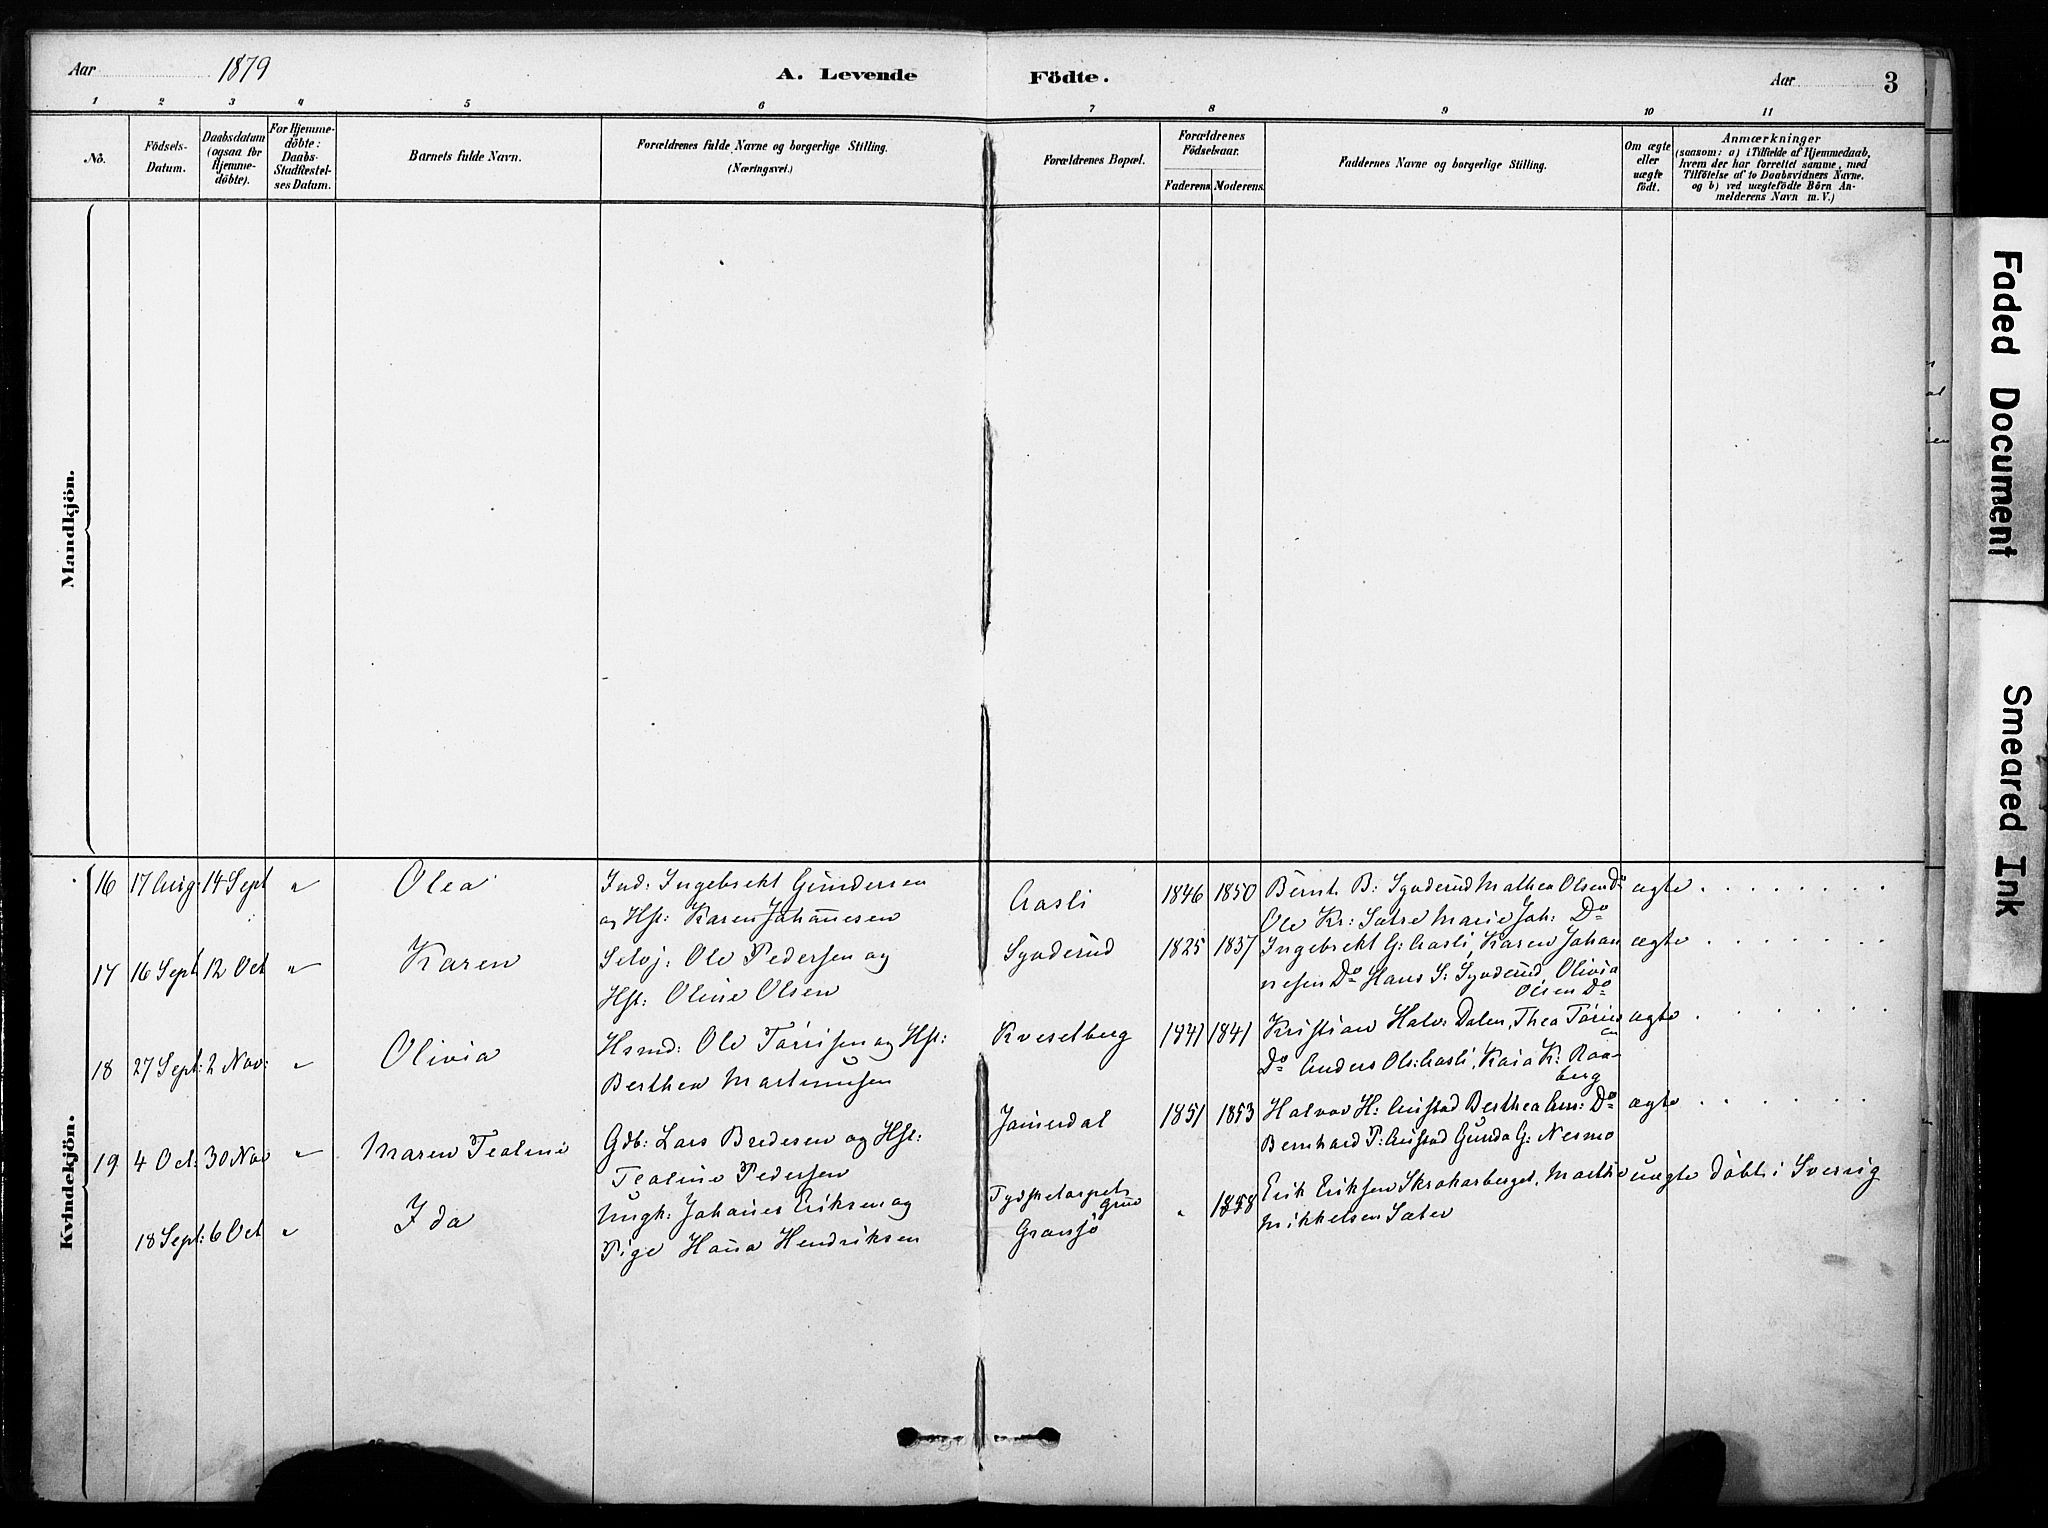 Aar 1879
A. Levende Födte.
Aar 3
1 2 3 4 5 6 7 8 9 10 11
No.
Födsels-
Datum.
Daabsdatum
(ogsaa for
Hjemme-
döbte).
For Hjemme-
döbte:
Daabs-
Stadfestel-
ses Datum.
Barnets fulde Navn.
Forældrenes fulde Navne og borgerlige Stilling.
(Næringsvei.)
Forældrenes Bopæl.
Forældrenes
Födselsaar.
Faderens. Moderens.
Faddernes Navne og borgerlige Stilling.
Om ægte
eller
uægte
födt.
Anmærkninger
(saasom: a) i Tilfælde af Hjemmedaab,
hvem der har forrettet samme, med
Tilföielse af to Daabsvidners Navne,
og b) ved uægtefödte Börn An-
melderens Navn m. V.)
Mandkjön.
Kvindekjön.
16 17 Aug: 14 Sept " Olea
Ind: Ingebrekt Gundersen
og Hst: Karen Johannesen
Aasli 1846 1850
Bernt B: Synderud Mathea Olsen Do
Ole Kr: Sætre Marie Joh: Do
ægte
17 16 Sept 12 Oct " Karen
Selvj: Ole Pedersen og
Hst: Oline Olsen
Synderud 1825 1837
Ingebrekt G: Aasli, Karen Johan
nesen Do Hans S: Synderud, Olivia
Olsen Do
ægte
18 27 Sept: 2 Nov: " Olivia
Hsmd: Ole Torrisen og Hst:
Berthea Martinusen
Kveselberg 1841 1841
Kristian Halv: Dalen, Thea
Do Anders Ols: Aasli, Kaia K: Raa-
berg
ægte
19 4 Oct: 30 Nov " Maren Tealine
Gdb: Lars Bredesen og Hst:
Tealine Pedersen
1851 1853
Halvor H: Austad Berthea Do
Bernhard P: Austad Gunda G: Nesmo
ægte
18 Sept: 6 Oct " Ida
Ungk: Johanes Eriksen og
Pige Hana Hendriksen
Grue
" 1858
Erik Eriksen Skrakarberget, Marthe
Mikkelsen Sæter
uægte döbt i Sverrig
Faded Document
Smeared Ink